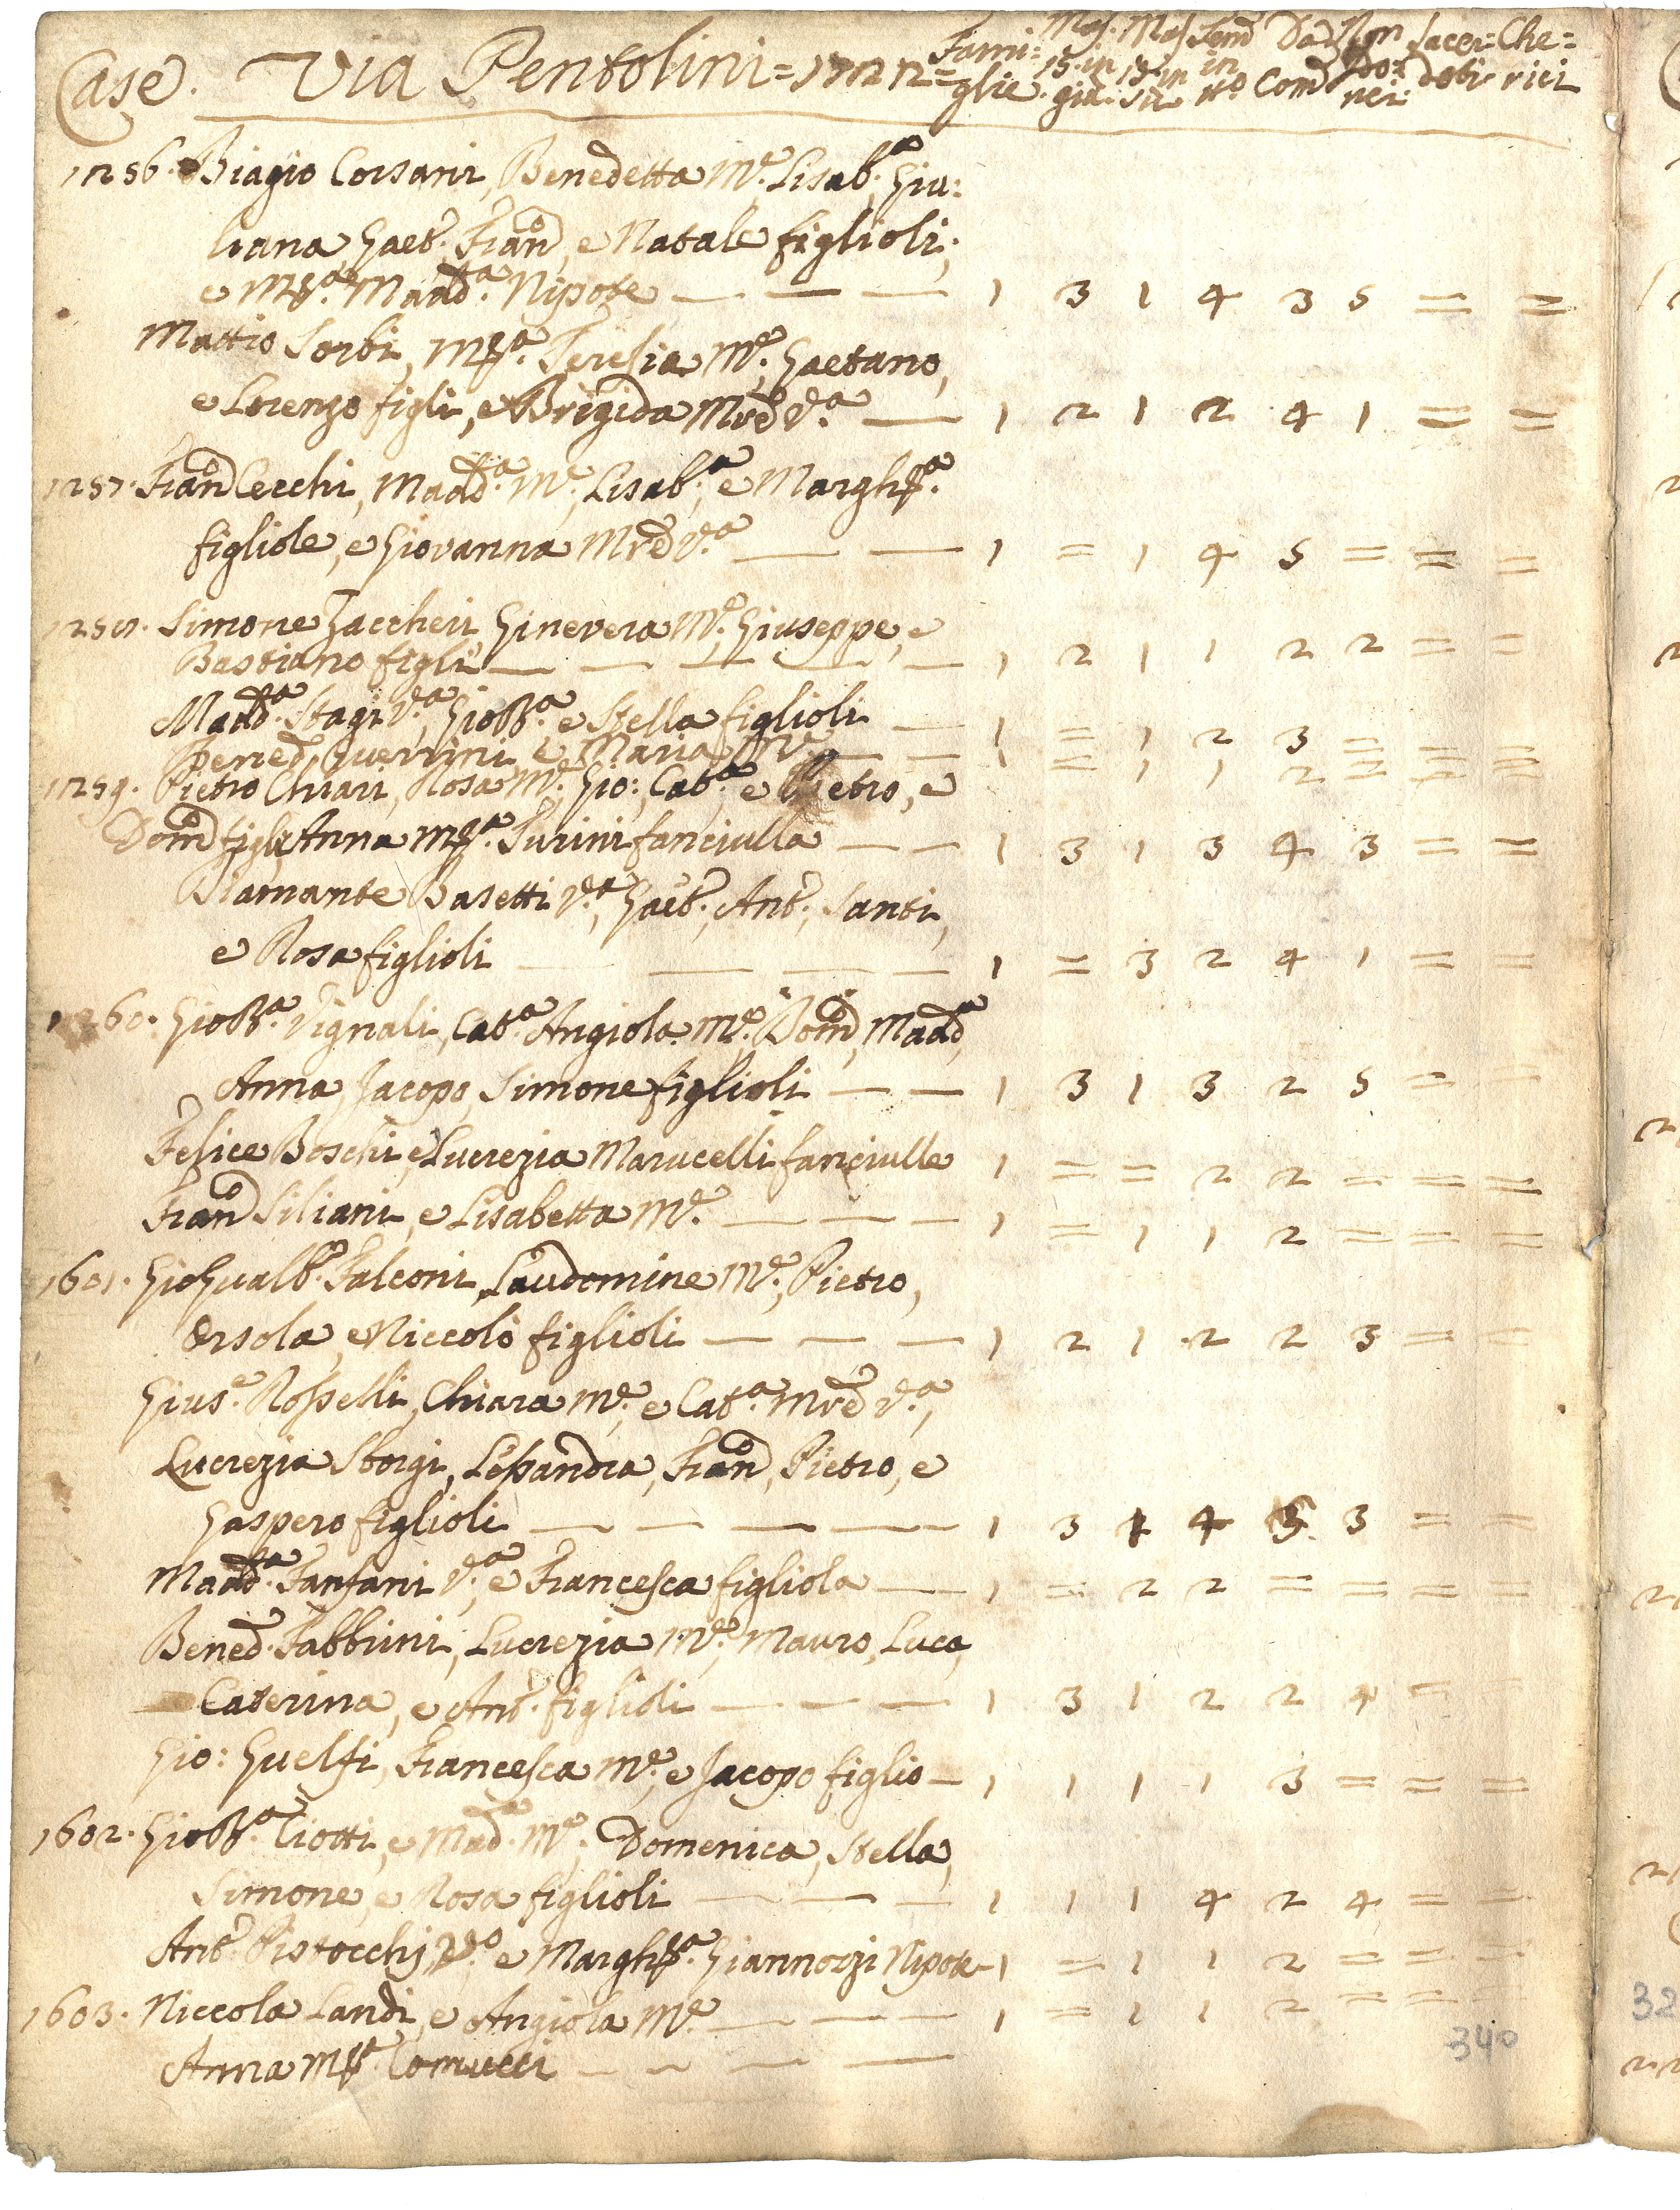 Case. Via Pentolini = 1722 = Fami: glie. Mas. 15. in giù. Mas 15 in su Fem̃ in n.º Da Com̃ Non Com̃ Sacer: doti Che= rici
1256. Biagio Corsani, Benedetta M.e Lisab.a Giu:
liana, Gaet.o Fran.o, e Natale figlioli,
e M.a Madd.a Nipote — — — 1 3 1 4 3 5 = =
Mattio Sorbi, M.a Teresia M.e, Gaetano,
e Lorenzo figli, e Brigida Mrẽ V.a — 1 2 1 2 4 1 = =
1257. Fran.o Cecchi, Madd.a M.e, Lisab.a, e Margh.a
figliole, e Giovanna Mrẽ V.a — — 1 = 1 4 5 = = =
1258. Simone Zaccheri, Ginevera M.e, Giuseppe, e
Bastiano figli — — — — — 1 2 1 1 2 2 = =
Madd.a Stagi V.a, GioB.a, e Stella figlioli — 1 = 1 2 3 = = =
Bened.o Guerrini e Maria M.e — — 1 = 1 1 2 = = =
1259. Pietro Chiari, Rosa M.e, Gio:, Cat.a e Pietro, e
Dom.o figli, Anna M.a Turini fanciulla — — 1 3 1 3 4 3 = =
Diamante Basetti V.a, Gaet.o, Ant.o, Santi,
e Rosa figlioli — — — — 1 = 3 2 4 1 = =
1260. GioB.a Vignali, Cat.a Angiola M.e, Dom.o, Madd.a,
Anna, Jacopo, Simone figlioli — — 1 3 1 3 2 5 = =
Felice Boschi, e Lucrezia Marucelli fanciulle 1 = = 2 2 = = =
Fran.o Siliani, e Lisabetta M.e — — — 1 = 1 1 2 = = =
1601. GioGualb.o Falconi, Laudomine M.e, Pietro,
Orsola, e Niccolò figlioli — — — 1 2 1 2 2 3 = =
Gius.e Rosselli, Chiara M.e, e Cat.a Mrẽ V.a,
Lucrezia Storgi, Lessandra, Fran.o, Pietro, e
Gaspero figlioli — — — — 1 3 1 4 5 3 = =
Madd.a Fanfani V.a, e Francesca figliola — 1 = 2 2 = = = =
Bened.o Fabbrini, Lucrezia M.e, Mauro, Luca,
Caterina, e Ant.o figlioli — — — 1 3 1 2 2 4 = =
Gio: Guelfi, Francesca M.e, e Jacopo figlio — 1 1 1 1 3 = = =
1602. GioB.a Ciotti, e Mad.a M.e, Domenica, Stella,
Simone, e Rosa figlioli — — — 1 1 1 4 2 4 = =
Ant.o Pistocchj V.o, e Margh.a Giannozzi Nipote — 1 = 1 1 2 = = =
1603. Niccola Landi, e Angiola M.e — — — 1 = 1 1 2 = = =
340
Anna M.a Comucci — — — —